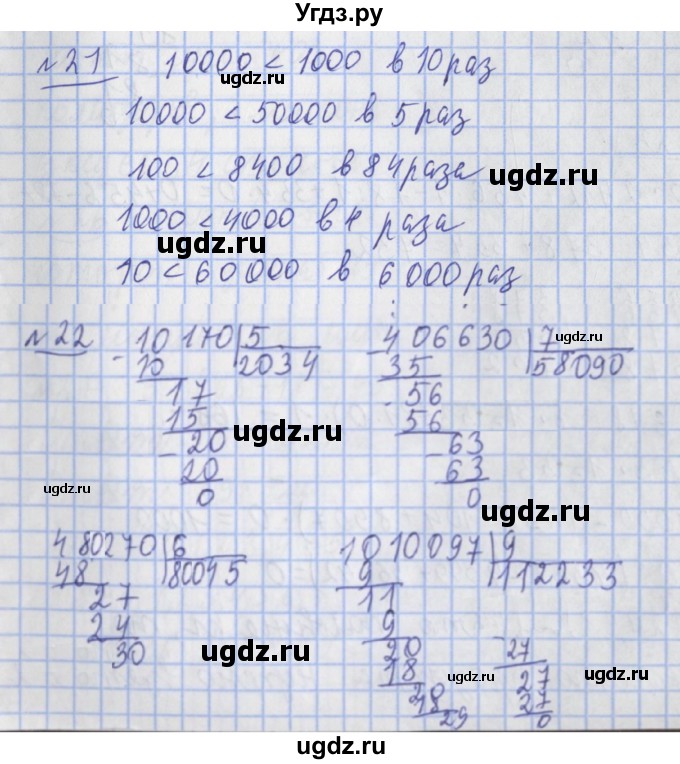 Угдз.ру
№21 10000 < 1000 в 10 раз
ugdz.ru
10000 < 50000 в 5 раз
100 < 8400 в 84 раза
ugdz.ru
1000 < 4000 в 4 раза
ugdz.ru
10 < 60000 в 6000 раз
№22
10170 | 5
10 | 2034
17
15
20
20
0
406630 | 7
35 | 58090
56
56
63
63
0
ugdz.ru
ugdz.ru
ugdz.ru
ugdz.ru
480270 | 6
48 | 80045
27
24
30
1010097 | 9
9 | 112233
11
9
20
18
29
27
27
27
0
ugdz.ru
ugdz.ru
ugdz.ru